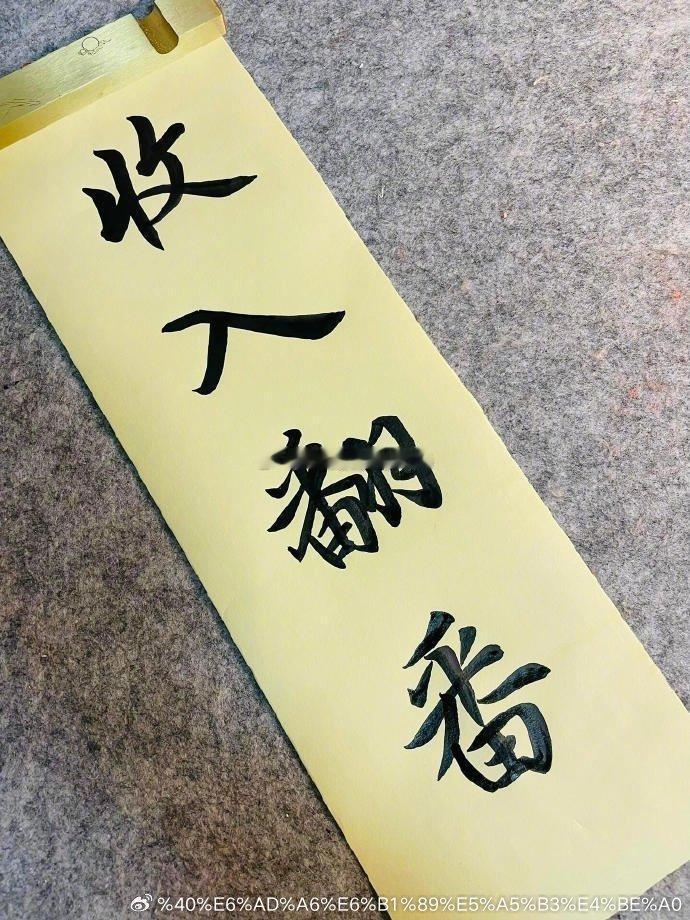 收入翻番
%40%E6%AD%A6%E6%B1%89%E5%A5%B3%E4%BE%A0